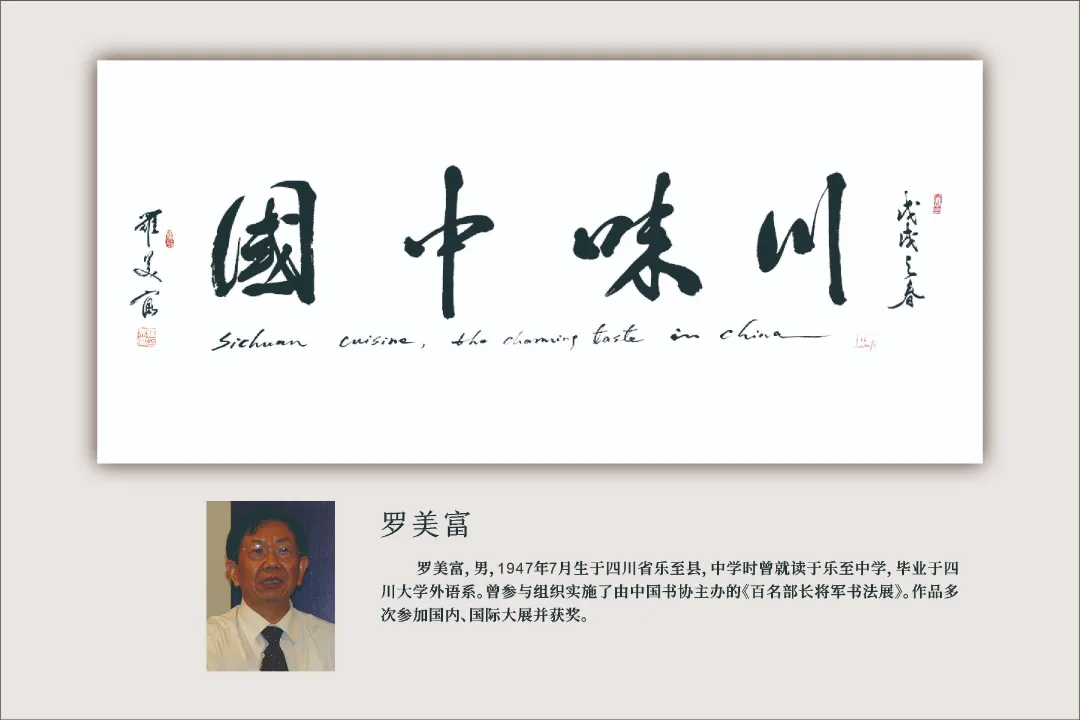 戊戌之春
川味中國
Sichuan cuisine, the charming taste in china
羅美富
罗美富
罗美富，男，1947年7月生于四川省乐至县，中学时曾就读于乐至中学，毕业于四
川大学外语系。曾参与组织实施了由中国书协主办的《百名部长将军书法展》。作品多
次参加国内、国际大展并获奖。